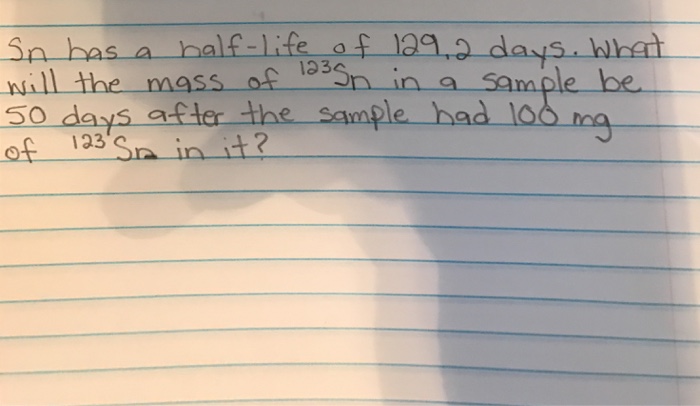 Sn has a half-life of 129.2 days. What
will the mass of ¹²³Sn in a sample be
50 days after the sample had 100 mg
of ¹²³Sn in it?